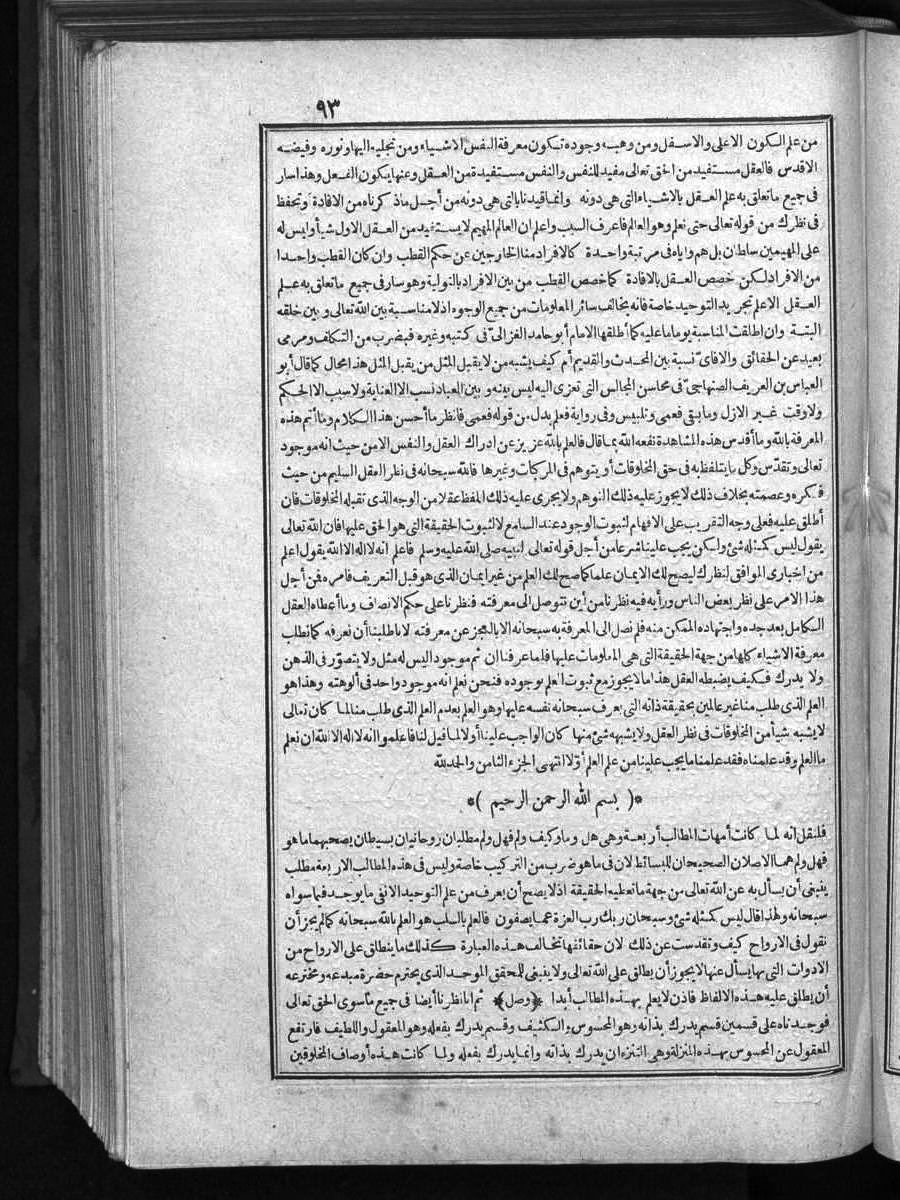 ٩٣
من علم الكون الاعلى والاسفل ومن وهبه وجوده تكون معرفة النفس الاشياء ومن تجليه اليها ونوره وفيضه
الاقدس فالعقل مستفيد من الحق تعالى مفيد للنفس والنفس مستفيدة من العقل وعنها يكون الفعل وهذا سار
فى جميع ما تعلق به علم العقل بالاشياء التى هى دونه وانما قيدنا بالتى هى دونه من أجل ماذكرناه من الافادة وتحفظ
فى نظرك من قوله تعالى حتى نعلم وهو العالم فاعرف السبب واعلم ان العالم المهيم لا يستفيد من العقل الاول شيأ وليس له
على المهيمين سلطان بل هم واياه فى مرتبة واحدة كالافراد منا الخارجين عن حكم القطب وان كان القطب واحدا
من الافراد لكن خصص العقل بالافادة كما خصص القطب من بين الافراد بالتولية وهو سار فى جميع ما تعلق به علم
العقل الا علم تجريد التوحيد خاصة فانه يخالف سائر المعلومات من جميع الوجوه اذ لا مناسبة بين الله تعالى وبين خلقه
البتة وان اطلقت المناسبة يوما ما عليه كما أطلقها الامام أبو حامد الغزالى فى كتبه وغيره فبضرب من التكلف ومرمى
بعيد عن الحقائق والا فأى نسبة بين المحدث والقديم أم كيف يشبه من لا يقبل المثل من يقبل المثل هذا محال كما قال أبو
العباس بن العريف الصنهاجى فى محاسن المجالس التى تعزى اليه ليس بينه وبين العباد نسب الا العناية ولا سبب الا الحكم
ولا وقت غير الازل وما بقى فعمى وتلبيس وفى رواية فعلم بدل من قوله فعمى فانظر ما أحسن هذا الكلام وما أتم هذه
المعرفة بالله وما أقدس هذه المشاهدة نفعه الله بما قال فالعلم بالله عزيز عن ادراك العقل والنفس الا من حيث انه موجود
تعالى وتقدّس وكل ما يتلفظ به فى حق المخلوقات أو يتوهم فى المركبات وغيرها فالله سبحانه فى نظر العقل السليم من حيث
فكره وعصمته بخلاف ذلك لا يجوز عليه ذلك التوهم ولا يجرى عليه ذلك اللفظ عقلا من الوجه الذى تقبله المخلوقات فان
أطلق عليه فعلى وجه التقريب على الافهام لثبوت الوجود عند السامع لا لثبوت الحقيقة التى هو الحق عليها فان الله تعالى
يقول ليس كمثله شئ ولكن يجب علينا شرعا من أجل قوله تعالى لنبيه صلى الله عليه وسلم فاعلم انه لا اله الا الله يقول اعلم
من اخبارى الموافق لنظرك ليصح لك الايمان علما كما صح لك العلم من غير ايمان الذى هو قبل التعريف فأمره فمن أجل
هذا الامر على نظر بعض الناس ورأيه فيه نظرنا من أين نتوصل الى معرفته فنظرنا على حكم الانصاف وما أعطاه العقل
الكامل بعد جده واجتهاده الممكن منه فلم نصل الى المعرفة به سبحانه الا بالعجز عن معرفته لانا طلبنا أن نعرفه كما نطلب
معرفة الاشياء كلها من جهة الحقيقة التى هى المعلومات عليها فلما عرفنا ان ثم موجودا ليس له مثل ولا يتصوّر فى الذهن
ولا يدرك فكيف يضبطه العقل هذا ما لا يجوز مع ثبوت العلم بوجوده فنحن نعلم انه موجود واحد فى ألوهته وهذا هو
العلم الذى طلب منا غير عالمين بحقيقة ذاته التى يعرف سبحانه نفسه عليها وهو العلم بعدم العلم الذى طلب منا لما كان تعالى
لا يشبه شيأ من المخلوقات فى نظر العقل ولا يشبهه شئ منها كان الواجب علينا أولا لما قيل لنا فاعلموا انه لا اله الا الله ان نعلم
ما العلم وقد علمناه فقد علمنا ما يجب علينا من علم العلم أوّلا انتهى الجزء الثامن والحمد لله
*( بسم الله الرحمن الرحيم )*
فلنقل انه لما كانت أمهات المطالب أربعة وهى هل وما وكيف ولم فهل ولم مطلبان روحانيان بسيطان يصحبهما ما هو
فهل ولم هما الاصلان الصحيحان للبسائط لان فى ما هو ضرب من التركيب خاصة وليس فى هذه المطالب الاربعة مطلب
ينبغى أن يسأل به عن الله تعالى من جهة ما تعطيه الحقيقة اذ لا يصح أن يعرف من علم التوحيد الا نفى ما يوجد فيما سواه
سبحانه ولهذا قال ليس كمثله شئ وسبحان ربك رب العزة عما يصفون فالعلم بالسلب هو العلم بالله سبحانه كما لم يجز أن
نقول فى الارواح كيف وتقدست عن ذلك لان حقائقها تخالف هذه العبارة كذلك ما ينطلق على الارواح من
الادوات التى بها يسأل عنها لا يجوز أن يطلق على الله تعالى ولا ينبغى للمحقق الموحد الذى يحترم حضرة مبدعه ومخترعه
أن يطلق عليه هذه الالفاظ فاذن لا يعلم بهذه المطالب أبدا ﴿وصل﴾ ثم انا نظرنا أيضا فى جميع ما سوى الحق تعالى
فوجدناه على قسمين قسم يدرك بذاته وهو المحسوس والكثيف وقسم يدرك بفعله وهو المعقول واللطيف فارتفع
المعقول عن المحسوس بهذه المنزلة وهى التنزه ان يدرك بذاته وانما يدرك بفعله ولما كانت هذه أوصاف المخلوقين